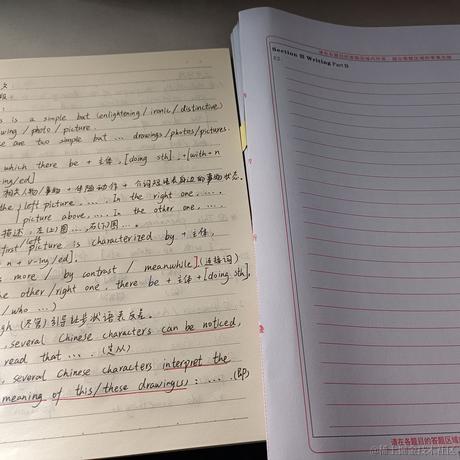 文
段
s is a simple but (enlightening / ironic / distinctive)
wing / photo / picture.
e are two simple but ... drawings/photos/pictures.
which there be + 主体, [doing sth] + [with + n
-ing/ed]
相关人物/事物 + 伴随动作 + 介词短语表身边的事物状态.
the left picture, .... In the right one, ....
picture above, .... In the other one, ....
描述, 左(上)图 ..., 右(下)图 ....
first/left picture is characterized by + 主体,
+ n + v-ing/ed].
s more / by contrast / meanwhile] (连接词)
he other/right one, there be + 主体 + [doing sth,
/ who ...)
gh (尽管) 引导让步状语表反差.
, several Chinese characters can be noticed,
read that ....
, several Chinese characters interpret the
meaning of this/these drawing(s) : .... (BP)
请在各题目的答题区域内作答，超出答题区域的答案无效
Section II Writing Part B
52.
请在各题目的答题区域
@稀土掘金技术社区